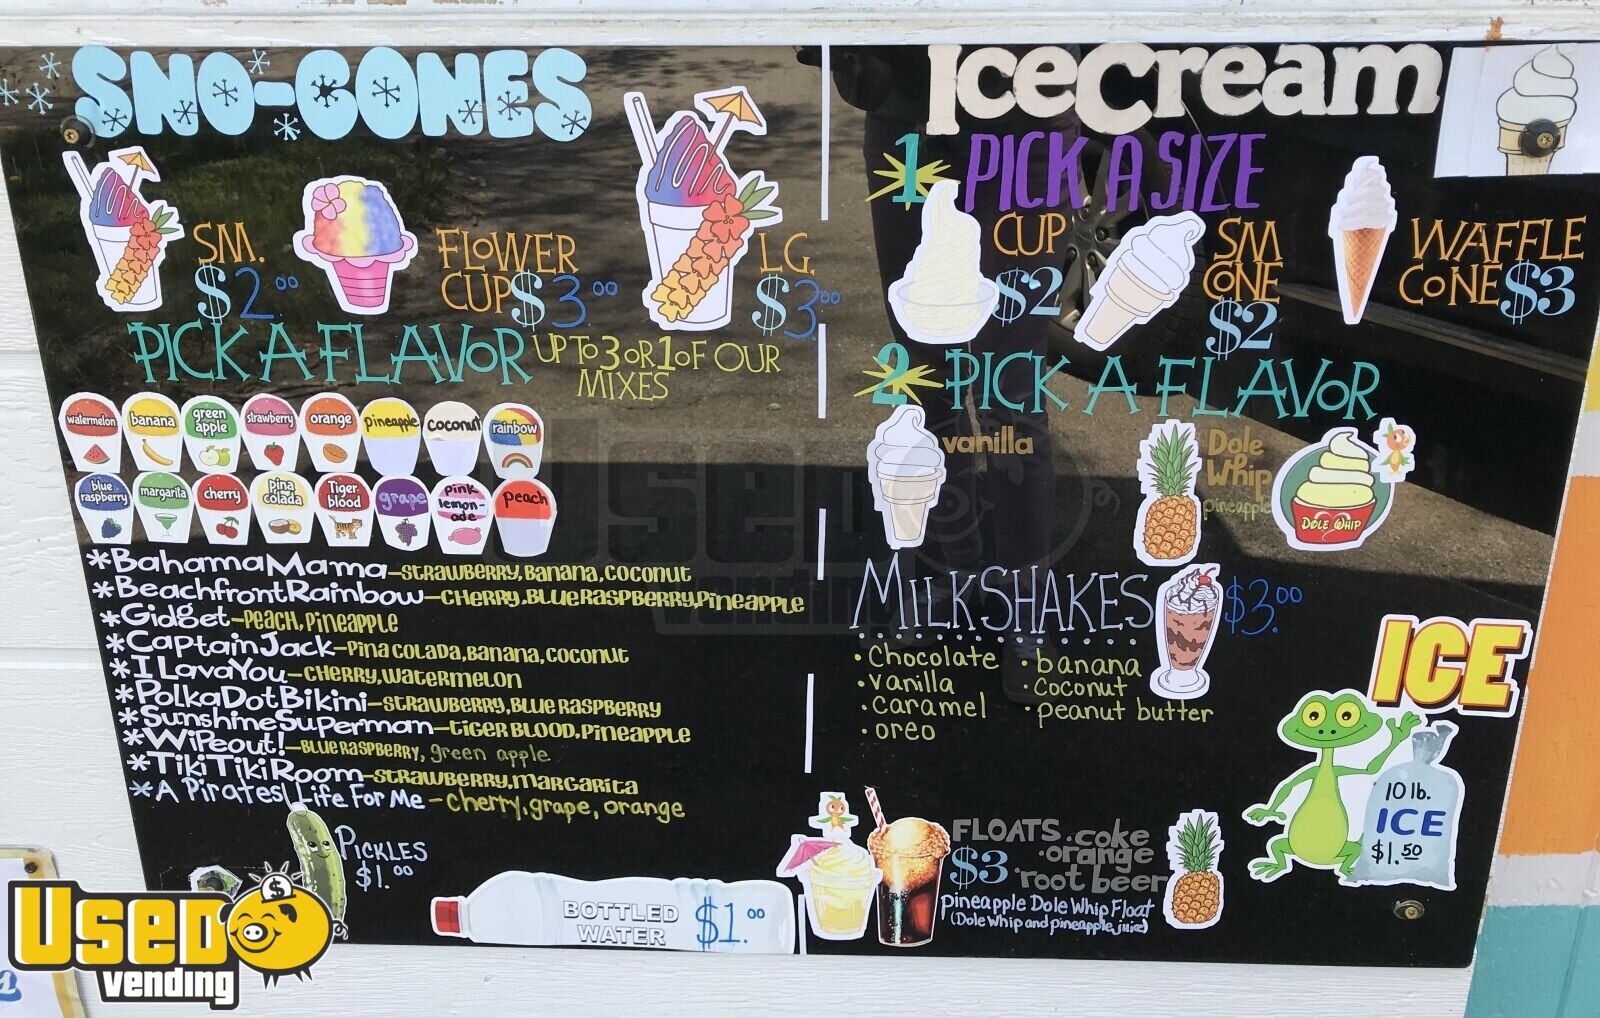 SNO-CONES
SM.
$2.00
FLOWER
CUP $3.00
LG.
$3.00
PICK A FLAVOR UP TO 3 OR 1 OF OUR
MIXES
watermelon banana green apple strawberry orange pineapple coconut rainbow
blue raspberry margarita cherry pina colada Tiger blood grape pink lemon-ade peach
*Bahama Mama-strawberry, banana, coconut
*Beachfront Rainbow-cherry, blue raspberry, pineapple
*Gidget-peach, pineapple
*Captain Jack-pina colada, banana, coconut
*I Lava You-cherry, watermelon
*Polka Dot Bikini-strawberry, blue raspberry
*Sunshine Superman-tiger blood, pineapple
*Wipeout!-blue raspberry, green apple
*Tiki Tiki Room-strawberry, margarita
*A Pirates Life For Me-cherry, grape, orange
PICKLES
$1.00
BOTTLED
WATER
$1.00
IceCream
1 PICK A SIZE
CUP
$2
SM
CONE
$2
WAFFLE
CONE $3
2 PICK A FLAVOR
vanilla
Dole
Whip
pineapple
DOLE WHIP
MILKSHAKES $3.00
• Chocolate
• vanilla
• caramel
• oreo
• banana
• coconut
• peanut butter
ICE
10 lb.
ICE
$1.50
FLOATS • coke
$3
• orange
• root beer
pineapple Dole Whip Float
(Dole whip and pineapple juice)
Used
vending
Used
vending